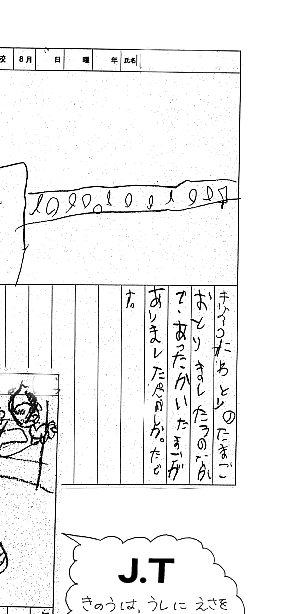 校 8月 日 曜 年 氏名
きのうにわとりのたまご
おとりました
で、あったかいたまごが
ありました
た。
J.T
きのうは、うしに えさを